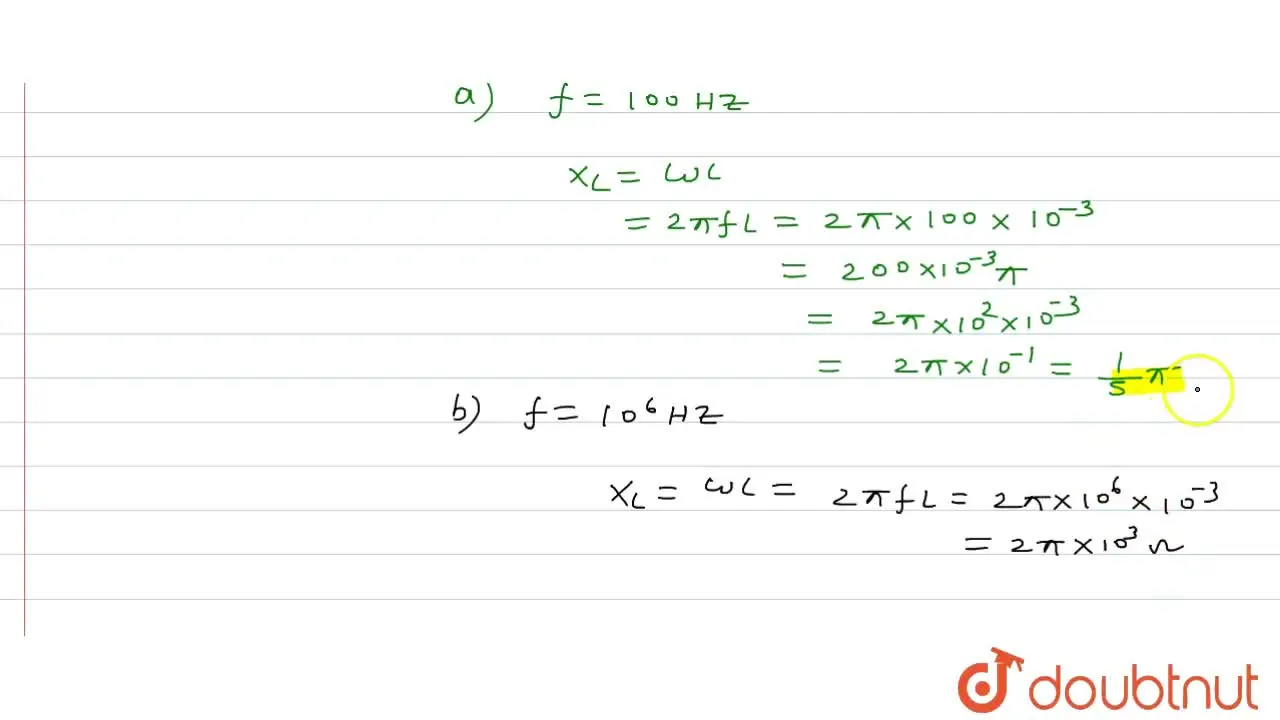 a) f = 100 HZ
XL = ωL
= 2πfL = 2π × 100 × 10⁻³
= 200 × 10⁻³ π
= 2π × 10² × 10⁻³
= 2π × 10⁻¹ = 1/5 π
b) f = 10⁶ HZ
XL = ωL = 2πfL = 2π × 10⁶ × 10⁻³
= 2π × 10³ Ω
doubtnut